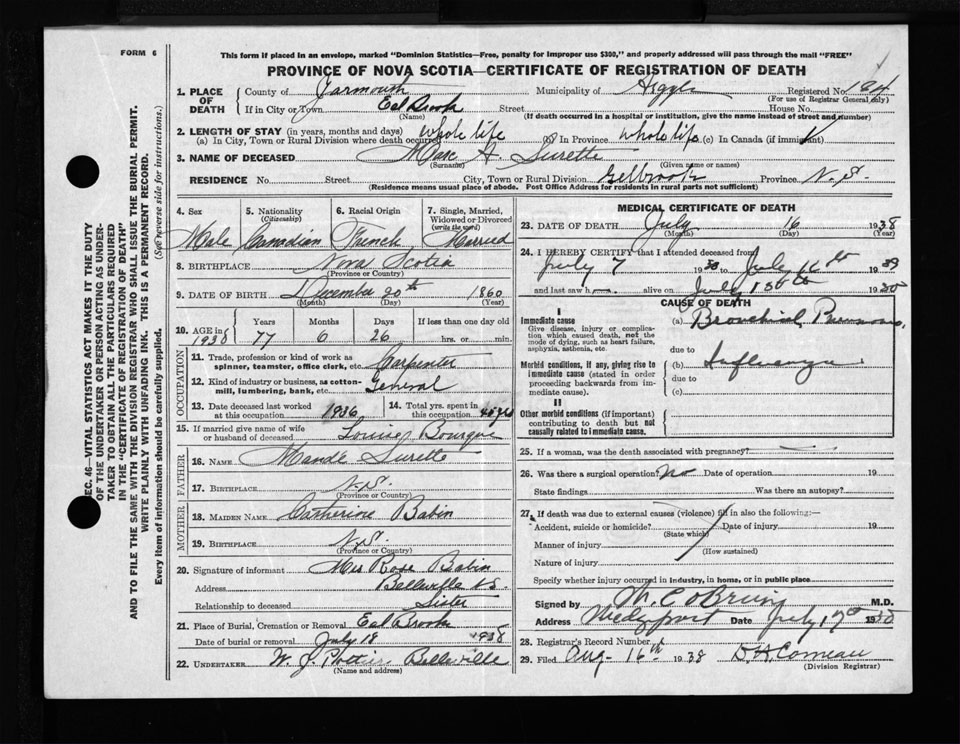 FORM 6
This form if placed in an envelope, marked "Dominion Statistics—Free, penalty for improper use $300," and properly addressed will pass through the mail "FREE"
PROVINCE OF NOVA SCOTIA—CERTIFICATE OF REGISTRATION OF DEATH
1. PLACE OF DEATH County of Yarmouth Municipality of Registered No. 184
(For use of Registrar General only)
If in City or Town Eel Brook Street House No.
(Name) (If death occurred in a hospital or institution, give the name instead of street and number)
2. LENGTH OF STAY (in years, months and days)
(a) In City, Town or Rural Division where death occurred whole life (b) In Province whole life (c) In Canada (if immigrant)
3. NAME OF DECEASED A. Surette
(Surname) (Given name or names)
RESIDENCE No. Street City, Town or Rural Division Eelbrook Province N.S.
(Residence means usual place of abode. Post Office Address for residents in rural parts not sufficient)
4. Sex Male
5. Nationality (Citizenship) Canadian
6. Racial Origin French
7. Single, Married, Widowed or Divorced (write the word) Married
8. BIRTHPLACE Nova Scotia
(Province or Country)
9. DATE OF BIRTH December 20th 1860
(Month) (Day) (Year)
10. AGE in 1938 Years 77 Months 6 Days 26 If less than one day old hrs. or min.
OCCUPATION
11. Trade, profession or kind of work as spinner, teamster, office clerk, etc. Carpenter
12. Kind of industry or business, as cotton-mill, lumbering, bank, etc. General
13. Date deceased last worked at this occupation 1936
14. Total yrs. spent in this occupation
15. If married give name of wife or husband of deceased Louise Bourque
FATHER
16. NAME Mandé Surette
17. BIRTHPLACE N.S.
(Province or Country)
MOTHER
18. MAIDEN NAME Catherine Babin
19. BIRTHPLACE N.S.
(Province or Country)
20. Signature of informant Mrs Rose Babin
Address Belleville N.S.
Relationship to deceased Sister
21. Place of Burial, Cremation or Removal Eel Brook
Date of burial or removal July 18 1938
22. UNDERTAKER W. J. Pottier Belleville
(Name and address)
MEDICAL CERTIFICATE OF DEATH
23. DATE OF DEATH July 16 1938
(Month) (Day) (Year)
24. I HEREBY CERTIFY that I attended deceased from
July 7 19 to July 19
and last saw h alive on July 15th 19
CAUSE OF DEATH
I
Immediate cause
Give disease, injury or complication which caused death, not the mode of dying, such as heart failure, asphyxia, asthenia, etc.
(a) Bronchial
due to
Morbid conditions, if any, giving rise to immediate cause (stated in order proceeding backwards from immediate cause).
(b) Influenza
due to
(c)
II
Other morbid conditions (if important) contributing to death but not causally related to immediate cause.
25. If a woman, was the death associated with pregnancy?
26. Was there a surgical operation? no Date of operation 19
State findings Was there an autopsy?
27. If death was due to external causes (violence) fill in also the following:—
Accident, suicide or homicide? Date of injury 19
(State which)
Manner of injury
(How sustained)
Nature of injury
Specify whether injury occurred in industry, in home, or in public place
Signed by M.D.
Address Wedgeport Date July 17th 19
28. Registrar's Record Number
29. Filed Aug- 16th 1938 D. A. Comeau
(Division Registrar)
SEC. 46—VITAL STATISTICS ACT MAKES IT THE DUTY
OF THE UNDERTAKER OR PERSON ACTING AS UNDERTAKER TO OBTAIN ALL THE PARTICULARS REQUIRED
IN THE "CERTIFICATE OF REGISTRATION OF DEATH"
AND TO FILE THE SAME WITH THE DIVISION REGISTRAR WHO SHALL ISSUE THE BURIAL PERMIT.
WRITE PLAINLY WITH UNFADING INK. THIS IS A PERMANENT RECORD.
Every item of information should be carefully supplied. (See reverse side for instructions.)